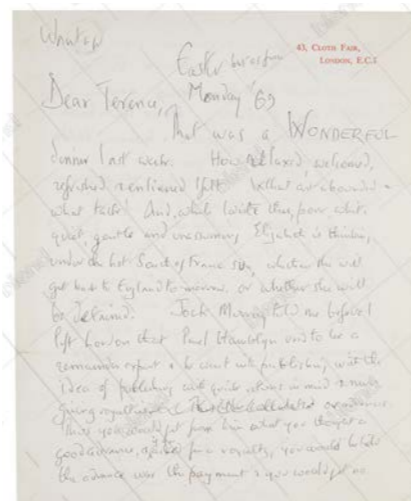 Wantage
43, CLOTH FAIR,
LONDON, E.C.1
Easter
Monday '69
Dear Terence,
That was a WONDERFUL
dinner last week. How relaxed, welcomed,
refreshed & enlivened I felt. What air abounded &
what taste! And, while I write this, poor white,
quiet, gentle and unassuming Elizabeth is thinking,
under the hot South of France sun, whether she will
get back to England to-morrow, or whether she will
be detained. Jock Murray told me before I
left London that Paul Hamblyn used to be a
remainder expert & he went into publishing with the
idea of publishing with quick returns in mind & never
giving royalties
Thus you would get from him what you thought a
good advance, & for a royalty, you would be
the advance was the payment & you would get no